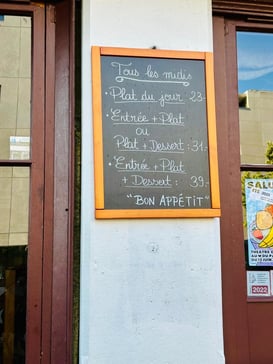 Tous les midis
• Plat du jour : 23.-
• Entrée + Plat
ou
Plat + Dessert : 31.-
• Entrée + Plat
+ Dessert : 39.-
"BON APPÉTIT"
SALU
2022